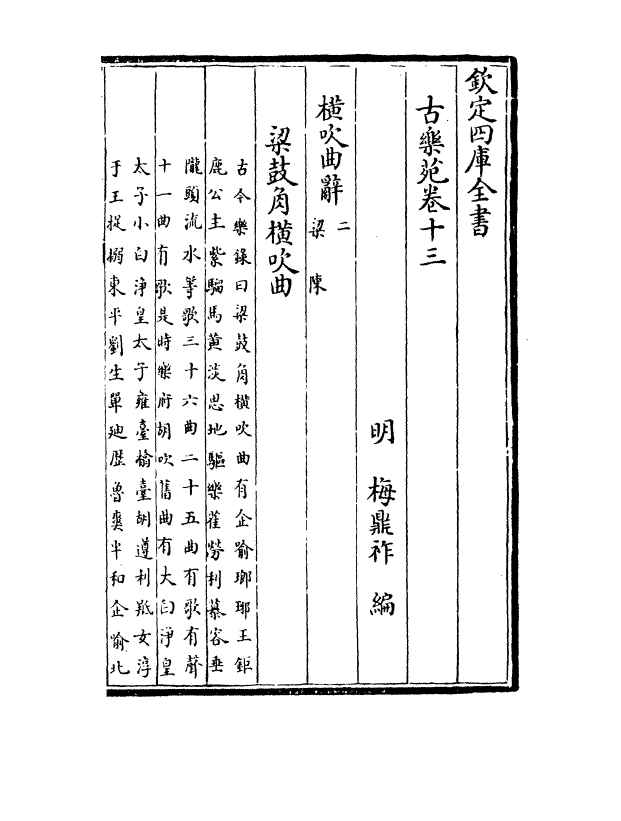 欽定四庫全書
古樂苑卷十三
明 梅鼎祚 編
橫吹曲辭二
梁 陳
梁鼓角橫吹曲
古今樂錄曰梁鼓角橫吹曲有企喻瑯琊王鉅
鹿公主紫騮馬黄淡思地驅樂雀勞利慕容垂
隴頭流水等歌三十六曲二十五曲有歌有聲
十一曲有歌是時樂府胡吹舊曲有大白淨皇
太子小白淨皇太子雍臺榆臺胡遵利羝女淳
于王捉搦東平劉生單廸歴魯爽半和企喻北